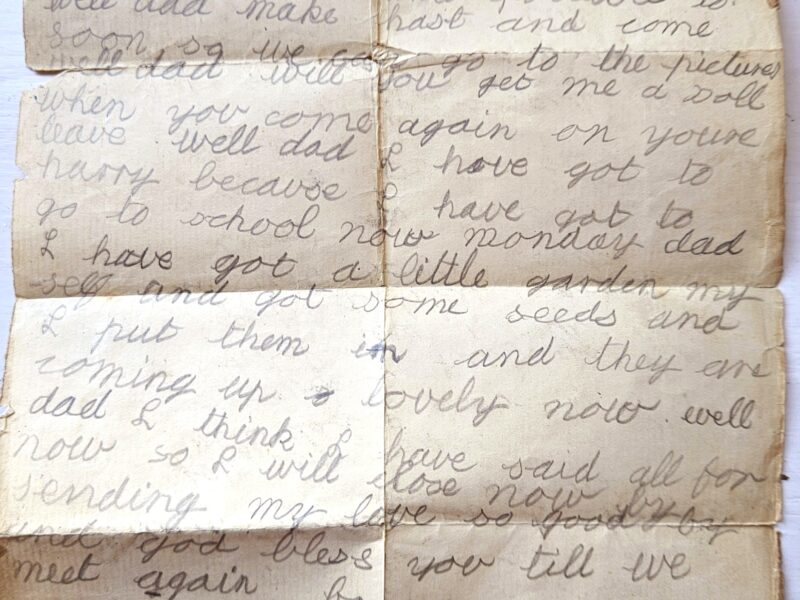 well dad make hast and come
soon so we can go to the pictures
well dad will you get me a doll
when you come again on youre
leave well dad I have got to
harry because I have got to
go to school now monday dad
I have got a little garden my
self and got some seeds and
I put them in and they are
coming up lovely now well
dad I think I have said all for
now so I will close now by
sending my love so good by
and god bless you till we
meet again